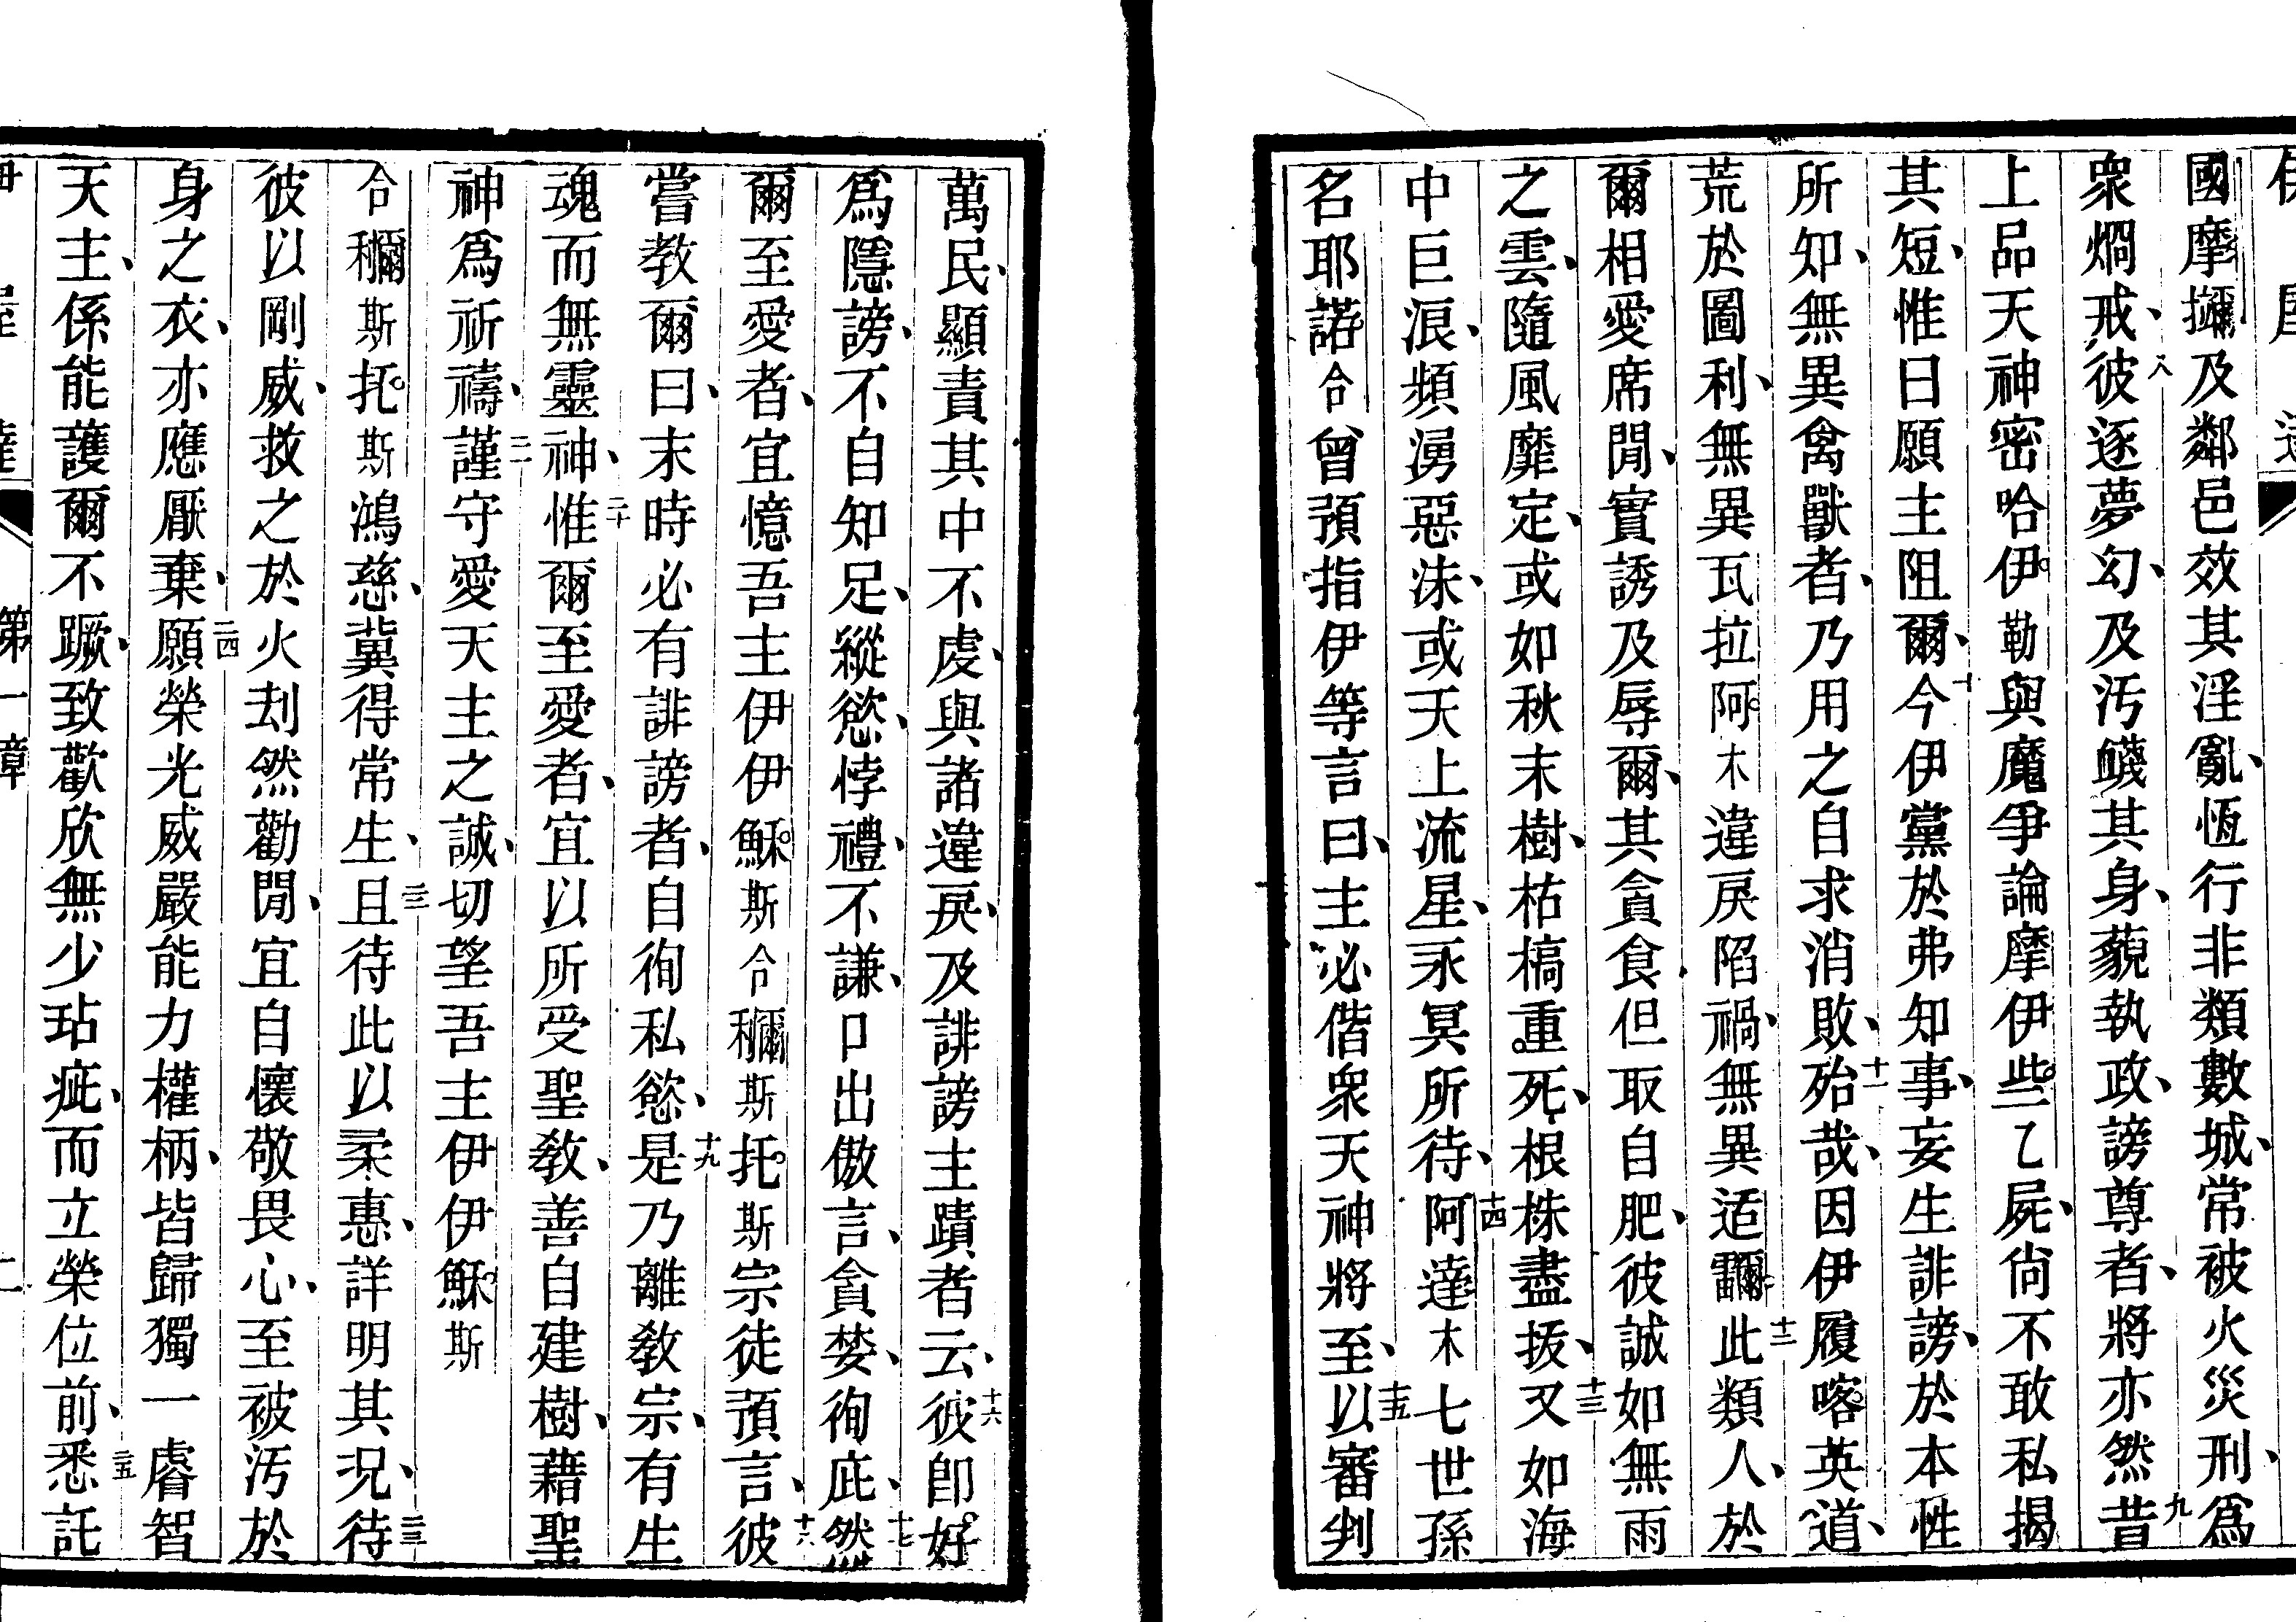 國摩𭡝及鄰邑效其淫亂恆行非類數城常被火災刑爲
衆燗戒八彼逐夢幻及汚衊其身藐執政謗尊者將亦然九昔
上品天神密哈伊勒與魔爭論摩伊些乙屍尙不敢私揭
其短惟曰願主阻爾十今伊黨於弗知事妄生誹謗於本性
所知無異禽獸者乃用之自求消敗十一殆哉因伊履喀英道
荒於圖利無異瓦拉阿木違戾陷禍無異适𩆜十二此類人於
爾相愛席閒實誘及辱爾其貪食但取自肥彼誠如無雨
之雲隨風靡定或如秋末樹枯槁重死根株盡拔十三又如海
中巨浪頻湧惡沫或天上流星永冥所待十四阿達木七世孫
名耶諾合曾預指伊等言曰主必偕衆天神將至十五以審判
萬民顯責其中不虔與諸違戾及誹謗主蹟者云十六彼卽好
爲隱謗不自知足縱慾悖禮不謙口出傲言貪婪徇庇十七然
爾至愛者宜憶吾主伊伊穌斯合穪斯托斯宗徒預言十八彼
嘗教爾曰末時必有誹謗者自徇私慾十九是乃離教宗有生
魂而無靈神二十惟爾至愛者宜以所受聖教善自建樹藉聖
神爲祈禱二一謹守愛天主之誠切望吾主伊伊穌斯
合穪斯托斯鴻慈冀得常生二二且待此以柔惠詳明其況二三待
彼以剛威救之於火刦然勸閒宜自懷敬畏心至被汚於
身之衣亦應厭棄二四願榮光威嚴能力權柄皆歸獨一睿智
天主係能護爾不蹶致歡欣無少玷疵而立榮位前二五悉託
第一章
二